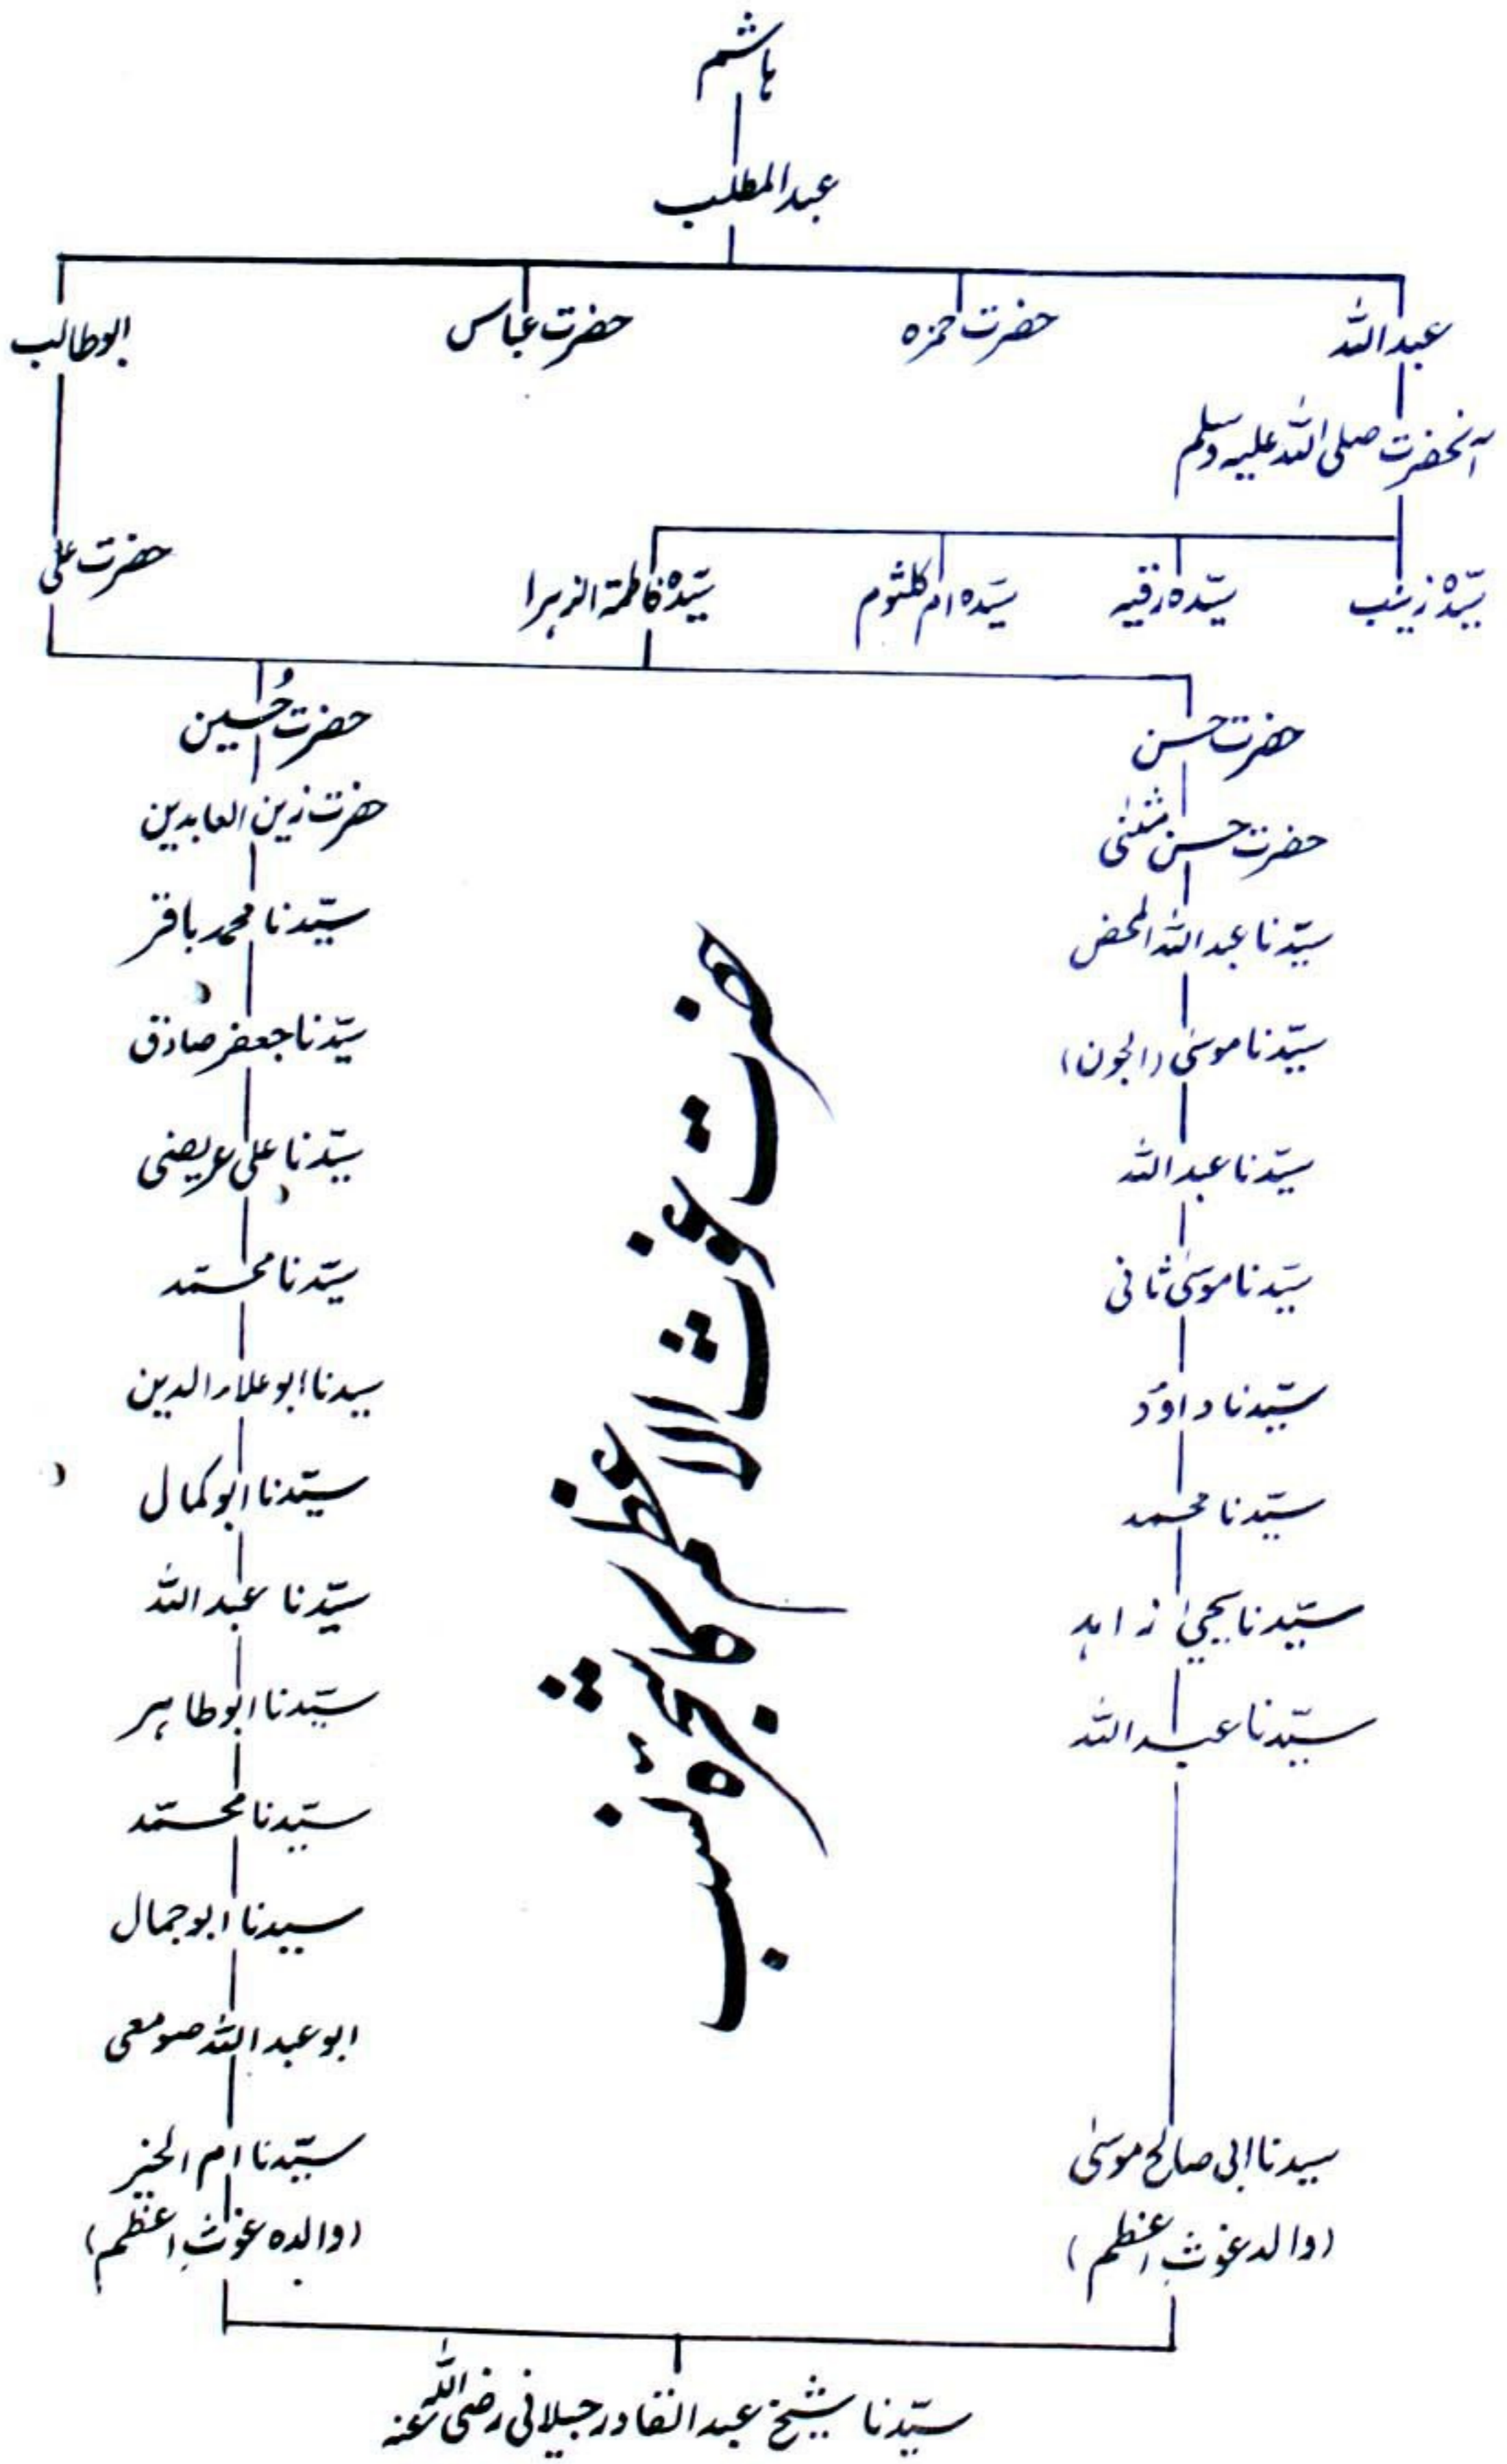 ہاشم
عبدالمطلب
عبداللہ
حضرت حمزہ
حضرت عباس
ابوطالب
آنحضرت صلی اللہ علیہ وسلم
سیّدہ زینب
سیّدہ رقیہ
سیّدہ ام کلثوم
سیّدہ فاطمۃ الزہرا
حضرت علی
حضرت حسن
حضرت حسن مثنیٰ
سیّدنا عبداللہ المحض
سیّدنا موسیٰ (الجون)
سیّدنا عبداللہ
سیّدنا موسیٰ ثانی
سیّدنا داؤد
سیّدنا محمد
سیّدنا یحییٰ زاہد
سیّدنا عبداللہ
سیدنا ابی صالح موسیٰ
(والد غوثِ اعظم)
حضرت غوث الاعظم کا شجرۂ نسب
حضرت حُسین
حضرت زین العابدین
سیّدنا محمد باقر
سیّدنا جعفر صادق
سیّدنا علی عریضی
سیّدنا محمّد
سیدنا ابو علاء الدین
سیّدنا ابو کمال
سیّدنا عبداللہ
سیّدنا ابو طاہر
سیّدنا محمّد
سیدنا ابو جمال
ابو عبداللہ صومعی
سیّدنا ام الخیر
(والدہ غوثِ اعظم)
سیّدنا شیخ عبدالقادر جیلانی رضی اللہ عنہ